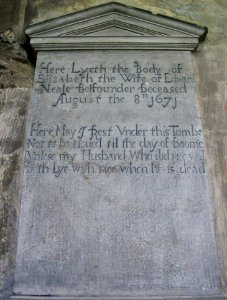 Here Lyeth the Body of
Elizabeth the Wife of Edward
Neale Belfounder Deceased
August the 8th 1671
Here May I Rest Vnder this Tombe
Not to be the day of Doome
Vnlese my Husband Who did
Doth Lye With Mee when He is dead